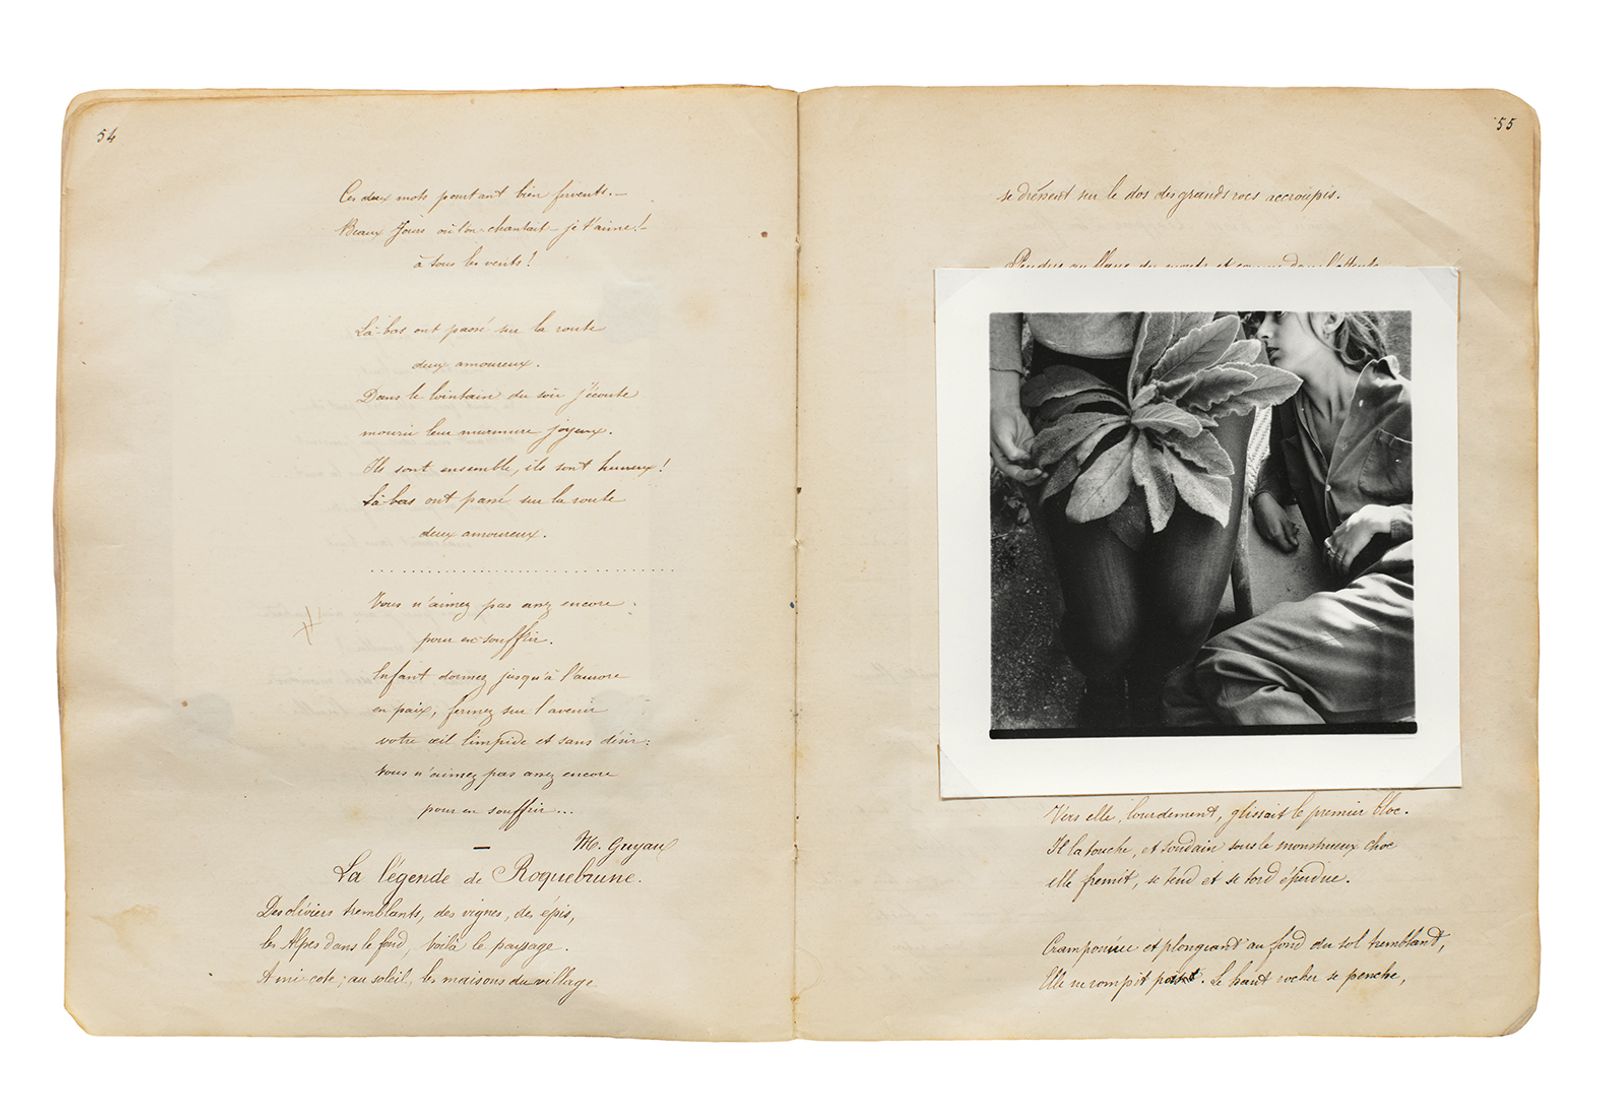 54
Ces deux mots pourtant bien fervents. —
Beaux Jours où l'on chantait - je t'aime! -
à tous les vents!
Là-bas ont passé sur la route
deux amoureux.
Dans le lointain du soir j'écoute
mourir leur murmure joyeux.
Ils sont ensemble, ils sont heureux!
Là-bas ont passé sur la route
deux amoureux.
..............................
Vous n'aimez pas assez encore
pour en souffrir.
Enfant dormez jusqu'à l'aurore
en paix, fermez sur l'avenir
votre œil limpide et sans désir:
Vous n'aimez pas assez encore
pour en souffrir...
M. Guyau
La légende de Roquebrune.
Des oliviers tremblants, des vignes, des épis,
les Alpes dans le fond, voilà le paysage.
A mi cote, au soleil, les maisons du village
55
se dressent sur le dos des grands rocs accroupis.
Pendus au flanc du monts et comme dans l'attente
Vers elle, lourdement, glissait le premier bloc.
Il la touche, et soudain sous le monstrueux choc
elle fremit, se tend et se tord éperdue.
Cramponnée et plongeant au fond du sol tremblant,
Elle ne rompit point. Le haut rocher se penche,